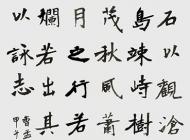 石以觀滄
島竦峙樹
茂秋風蕭
月之行若
爛若出其
以詠志